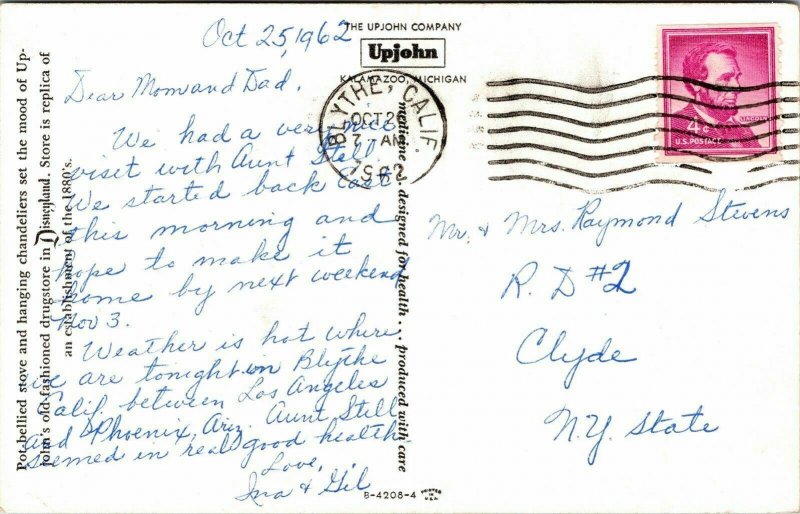 Oct 25, 1962
Dear Mom and Dad,
We had a very nice
visit with Aunt Stell.
We started back east
this morning and
hope to make it
home by next weekend
Nov 3.
Weather is hot where
we are tonight in Blythe
Calif. between Los Angeles
and Phoenix, Ariz. Aunt Stell
seemed in real good health
Love,
Ina & Gil
Pot-bellied stove and hanging chandeliers set the mood of Up-
john's old-fashioned drugstore in Disneyland. Store is replica of
an establishment of the 1880's.
THE UPJOHN COMPANY
Upjohn
KALAMAZOO, MICHIGAN
medicine . . . designed for health . . . produced with care
BLYTHE, CALIF.
OCT 2
7 AM
1962
4¢
LINCOLN
U.S. POSTAGE
Mr. & Mrs. Raymond Stevens
R. D #2
Clyde
N.Y. State
B-4208-4 PRINTED IN U.S.A.